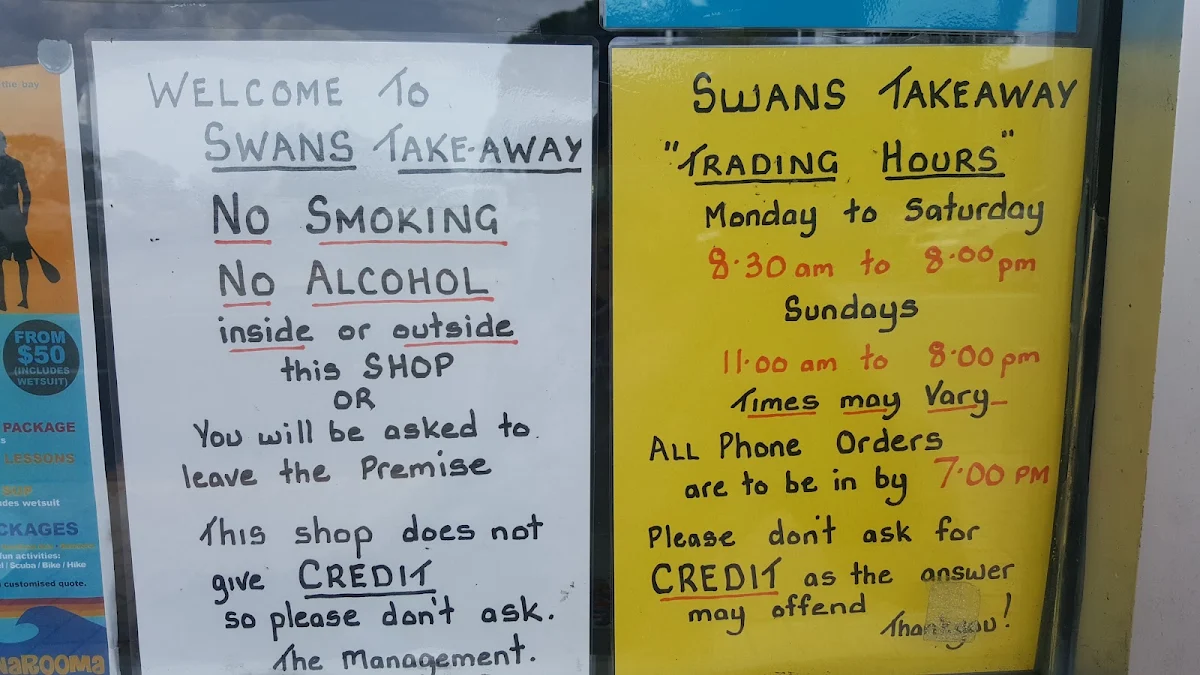 WELCOME TO
SWANS TAKE-AWAY
NO SMOKING
NO ALCOHOL
inside or outside
this SHOP
OR
You will be asked to.
leave the Premise
This shop does not
give CREDIT
so please don't ask.
The Management.
SWANS TAKEAWAY
"TRADING HOURS"
Monday to Saturday
8.30 am to 8.00 pm
Sundays
11.00 am to 8.00 pm
Times may Vary
ALL Phone Orders
are to be in by 7.00 PM
Please don't ask for
CREDIT as the answer
may offend
Thank you!
the bay
FROM
$50
(INCLUDES
WETSUIT)
PACKAGE
LESSONS
wetsuit
fun activities:
/ Scuba / Bike / Hike
customised quote.